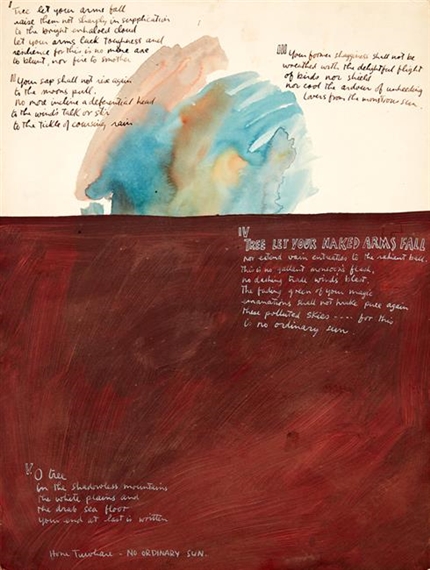 I
Tree let your arms fall
raise them not sharply in supplication
to the bright enhaloed cloud
let your arms lack toughness and
resilience for this is no mere axe
to blunt, nor fire to smother
II Your sap shall not rise again
to the moons pull.
No more incline a deferential head
to the wind's talk or stir
to the tickle of coursing rain
III Your former shagginess shall not be
wreathed with the delightful flight
of birds nor shield
nor cool the ardour of unheeding
lovers from the monstrous sun.
IV
TREE LET YOUR NAKED ARMS FALL
nor extend vain entreaties to the radiant ball.
This is no gallant monsoon's flash,
no dashing trade wind's blast.
The fading green of your magic
emanations shall not make pure again
these polluted skies .... for this
is no ordinary sun.
V O tree
in the shadowless mountains
the white plains and
the drab sea floor
your end at last is written
Hone Tuwhare - NO ORDINARY SUN.